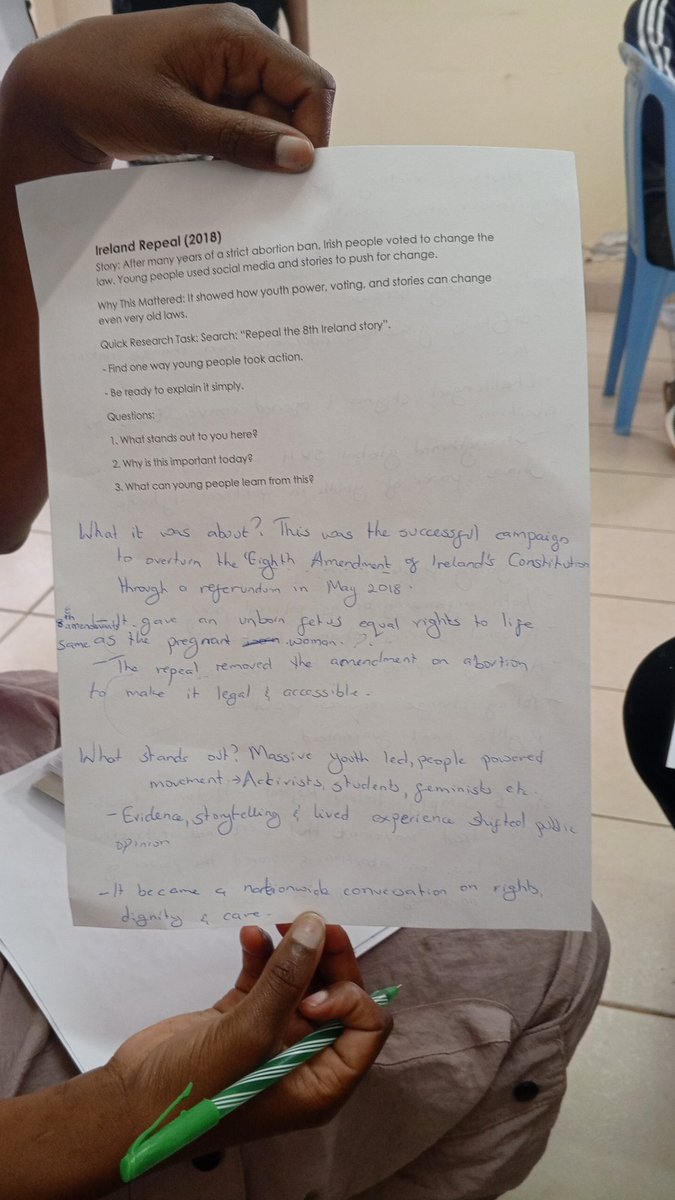 Ireland Repeal (2018)
Story: After many years of a strict abortion ban, Irish people voted to change the
law. Young people used social media and stories to push for change.
Why This Mattered: It showed how youth power, voting, and stories can change
even very old laws.
Quick Research Task: Search: “Repeal the 8th Ireland story”.
- Find one way young people took action.
- Be ready to explain it simply.
Questions:
1. What stands out to you here?
2. Why is this important today?
3. What can young people learn from this?
What it was about? This was the successful campaign
to overturn the 'Eighth Amendment of Ireland's Constitution
through a referundum in May 2018.
8th amendment It gave an unborn fetus equal rights to life
same as the pregnant woman.
- The repeal removed the amendment on abortion
to make it legal & accessible.
What stands out? Massive youth led, people powered
movement → Activists, students, feminists etc.
- Evidence, storytelling & lived experience shifted public
opinion
- It became a nationwide conversation on rights,
dignity & care.